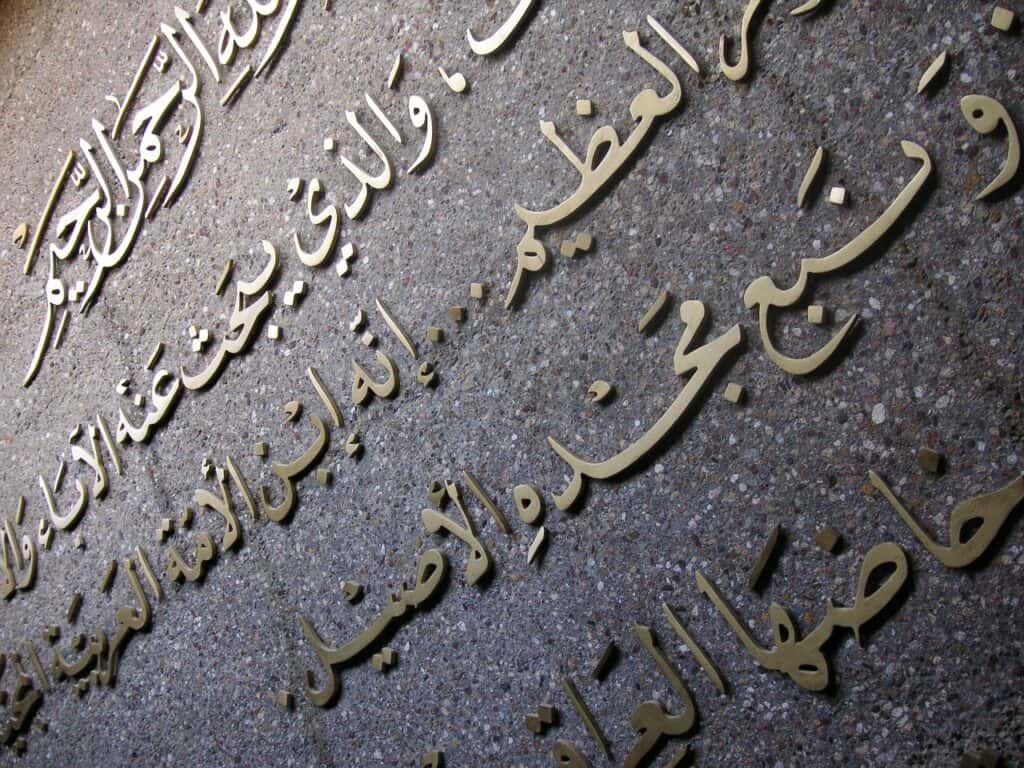 الله الرَّحمنِ الرَّحيمِ
وَالذيْ يبحَث عَنه الآبَاء
العظيم... إنّه ابْن الأمّة العربيَّة
وَنبع مجْدهِ الأصيْل.
حاضنها